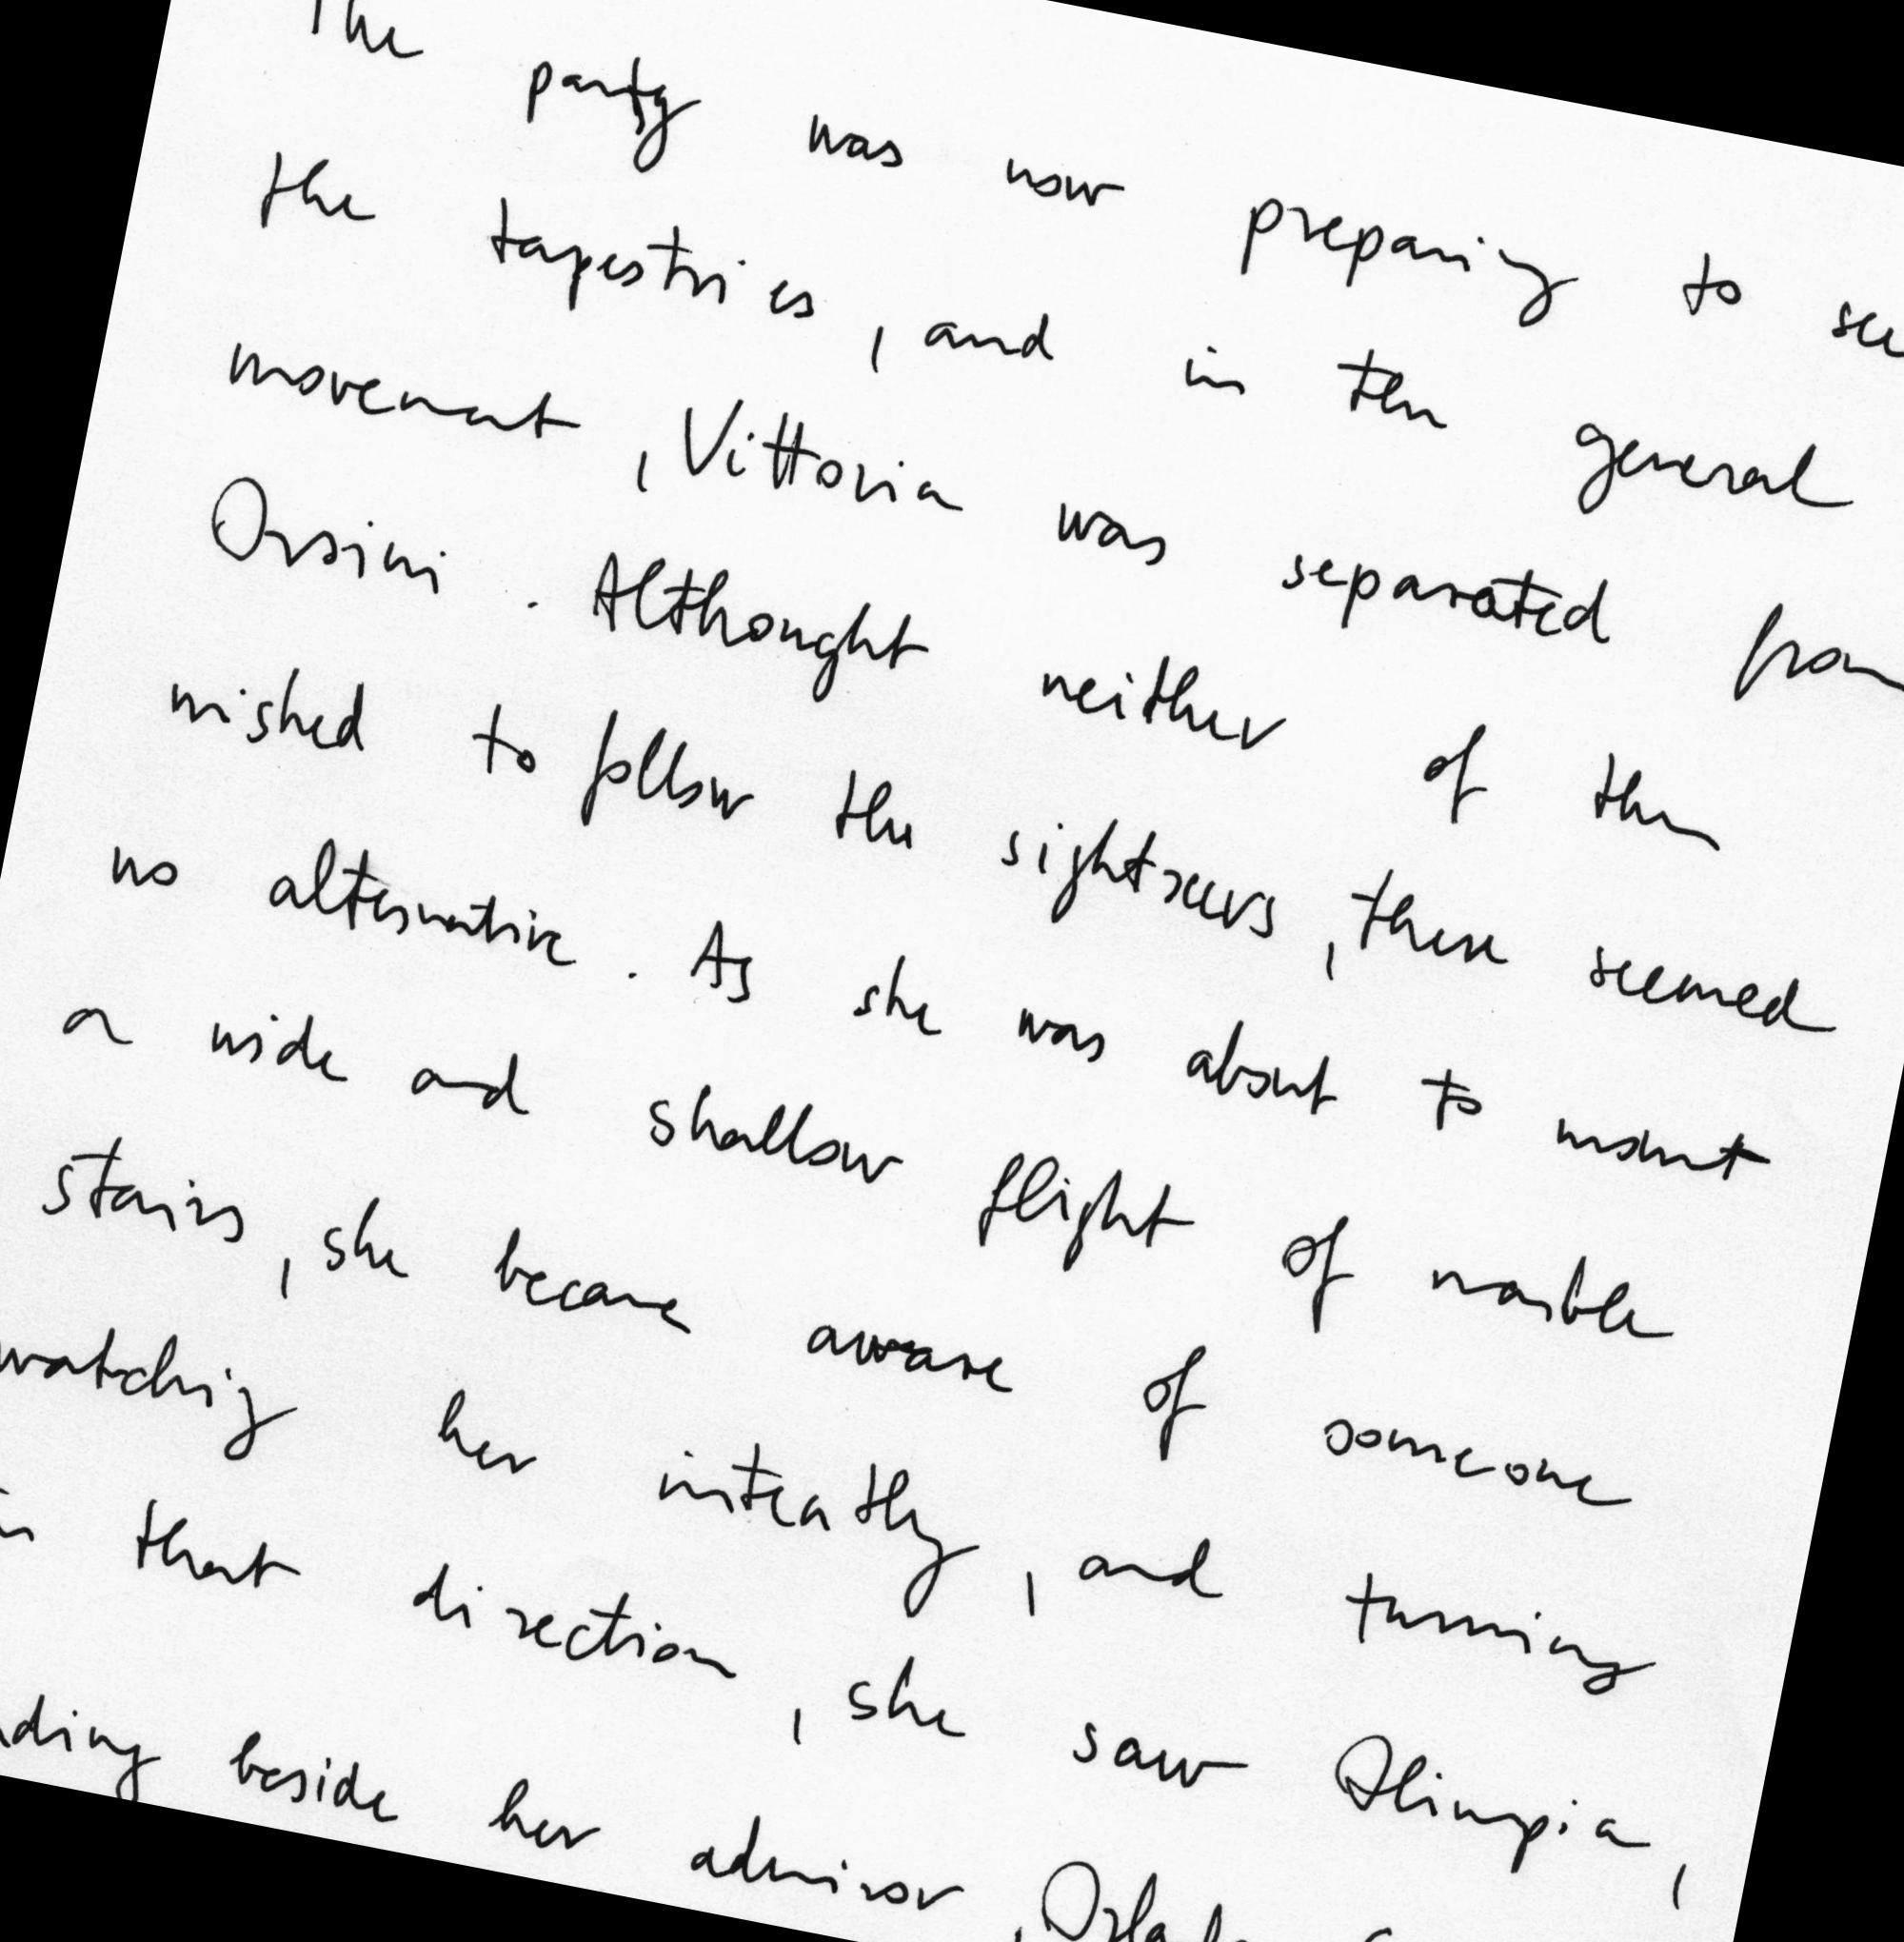 The party was now preparing to see
the tapestries, and in the general
movement, Vittoria was separated from
Orsini. Althought neither of them
wished to follow the sightseers, there seemed
no alternative. As she was about to mount
a wide and shallow flight of marble
stairs, she became aware of someone
watching her intently, and turning
in that direction, she saw Olimpia,
beside her admiror,